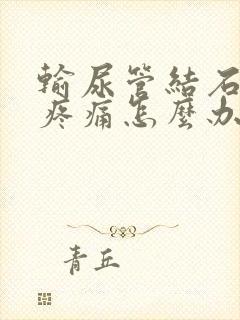 輸尿管結石
疼痛怎麼办
青丘